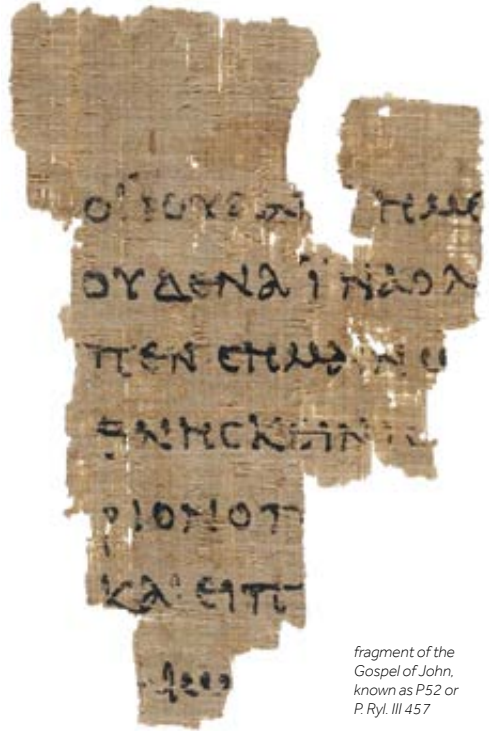 ΟΙ ΙΟΥΔΑΙ ΗΜΕ
ΟΥΔΕΝΑ ΪΝΑ ΟΛ
ΠΕΝ ΣΗΜΑΙΝΩ
ΘΝΗΣΚΕΙΝ ΙΣ
ΡΙΟΝ Ο Π
ΚΑΙ ΕΙΠ
fragment of the
Gospel of John,
known as P52 or
P. Ryl. III 457